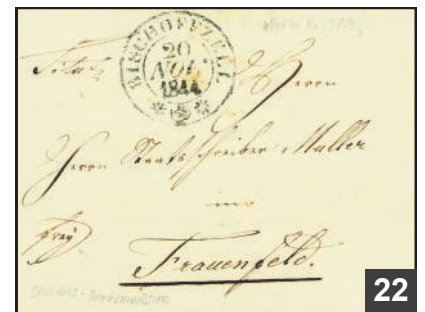 BISCHOFFZELL
20
NOV.
1844
Titl.
Herrn
Herrn Staatsschreiber Müller
in
frey
Frauenfeld.
22